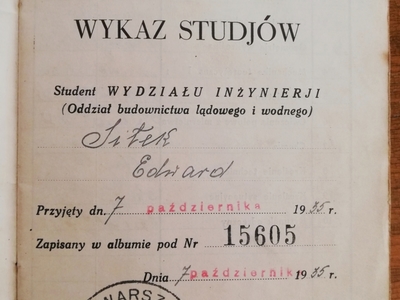 WYKAZ STUDJÓW
Student WYDZIAŁU INŻYNIERJI
(Oddział budownictwa lądowego i wodnego)
Sitek
Edward
Przyjęty dn. 7 października 1935 r.
Zapisany w albumie pod Nr 15605
Dnia 7 październik 1935 r.
WARSZ